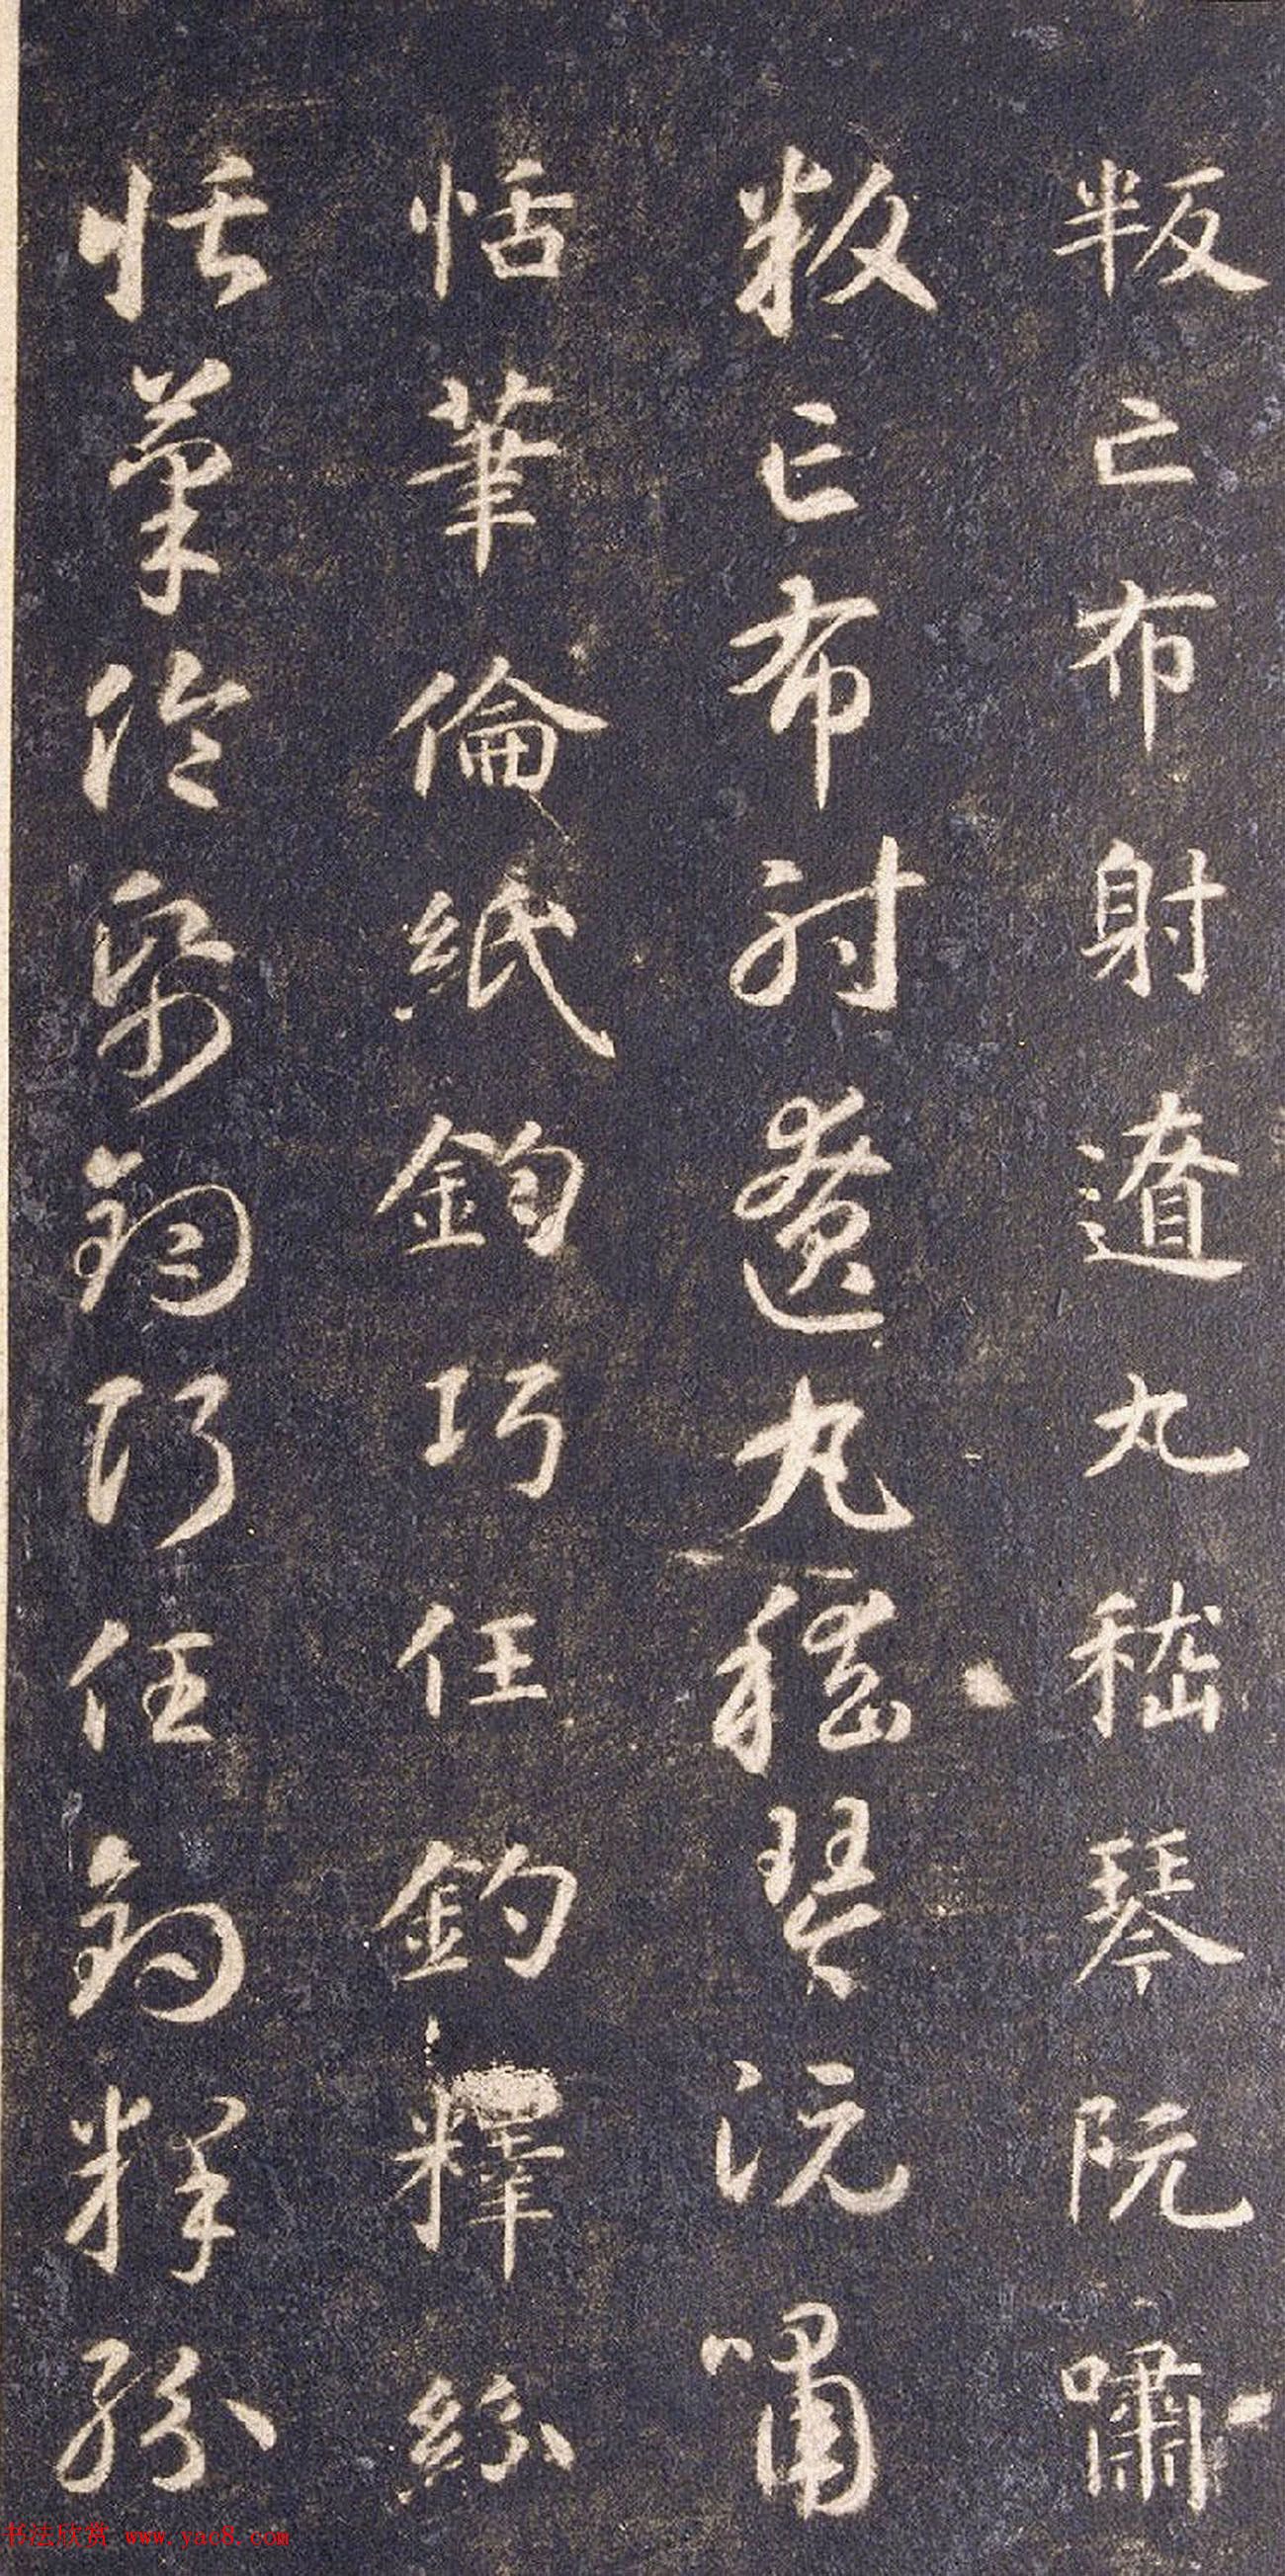 叛亡布射遼丸嵇琴阮嘯
叛亡布射遼丸嵇琴阮嘯
恬筆倫紙鈞巧任釣釋紛
恬筆倫紙鈞巧任釣釋紛
书法欣赏 www.yac8.com